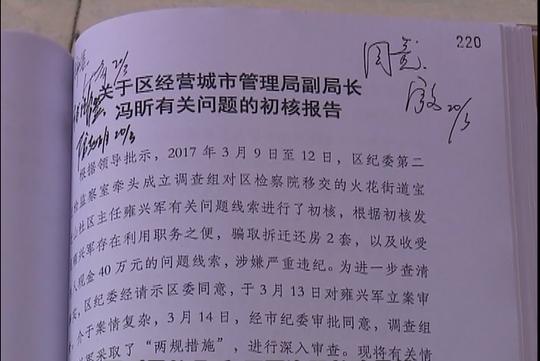 220
同意
20/3
20/3
20/3
关于区经营城市管理局副局长
冯昕有关问题的初核报告
根据领导批示，2017 年 3 月 9 日至 12 日，区纪委第二
检监察室牵头成立调查组对区检察院移交的火花街道宝
社区主任雍兴军有关问题线索进行了初核，根据初核发
兴军存在利用职务之便，骗取拆迁还房 2 套，以及收受
人现金 40 万元的问题线索，涉嫌严重违纪。为进一步查清
，区纪委经请示区委同意，于 3 月 13 日对雍兴军立案审
介于案情复杂，3 月 14 日，经市纪委审批同意，调查组
军采取了“两规措施”，进行深入审查。现将有关情